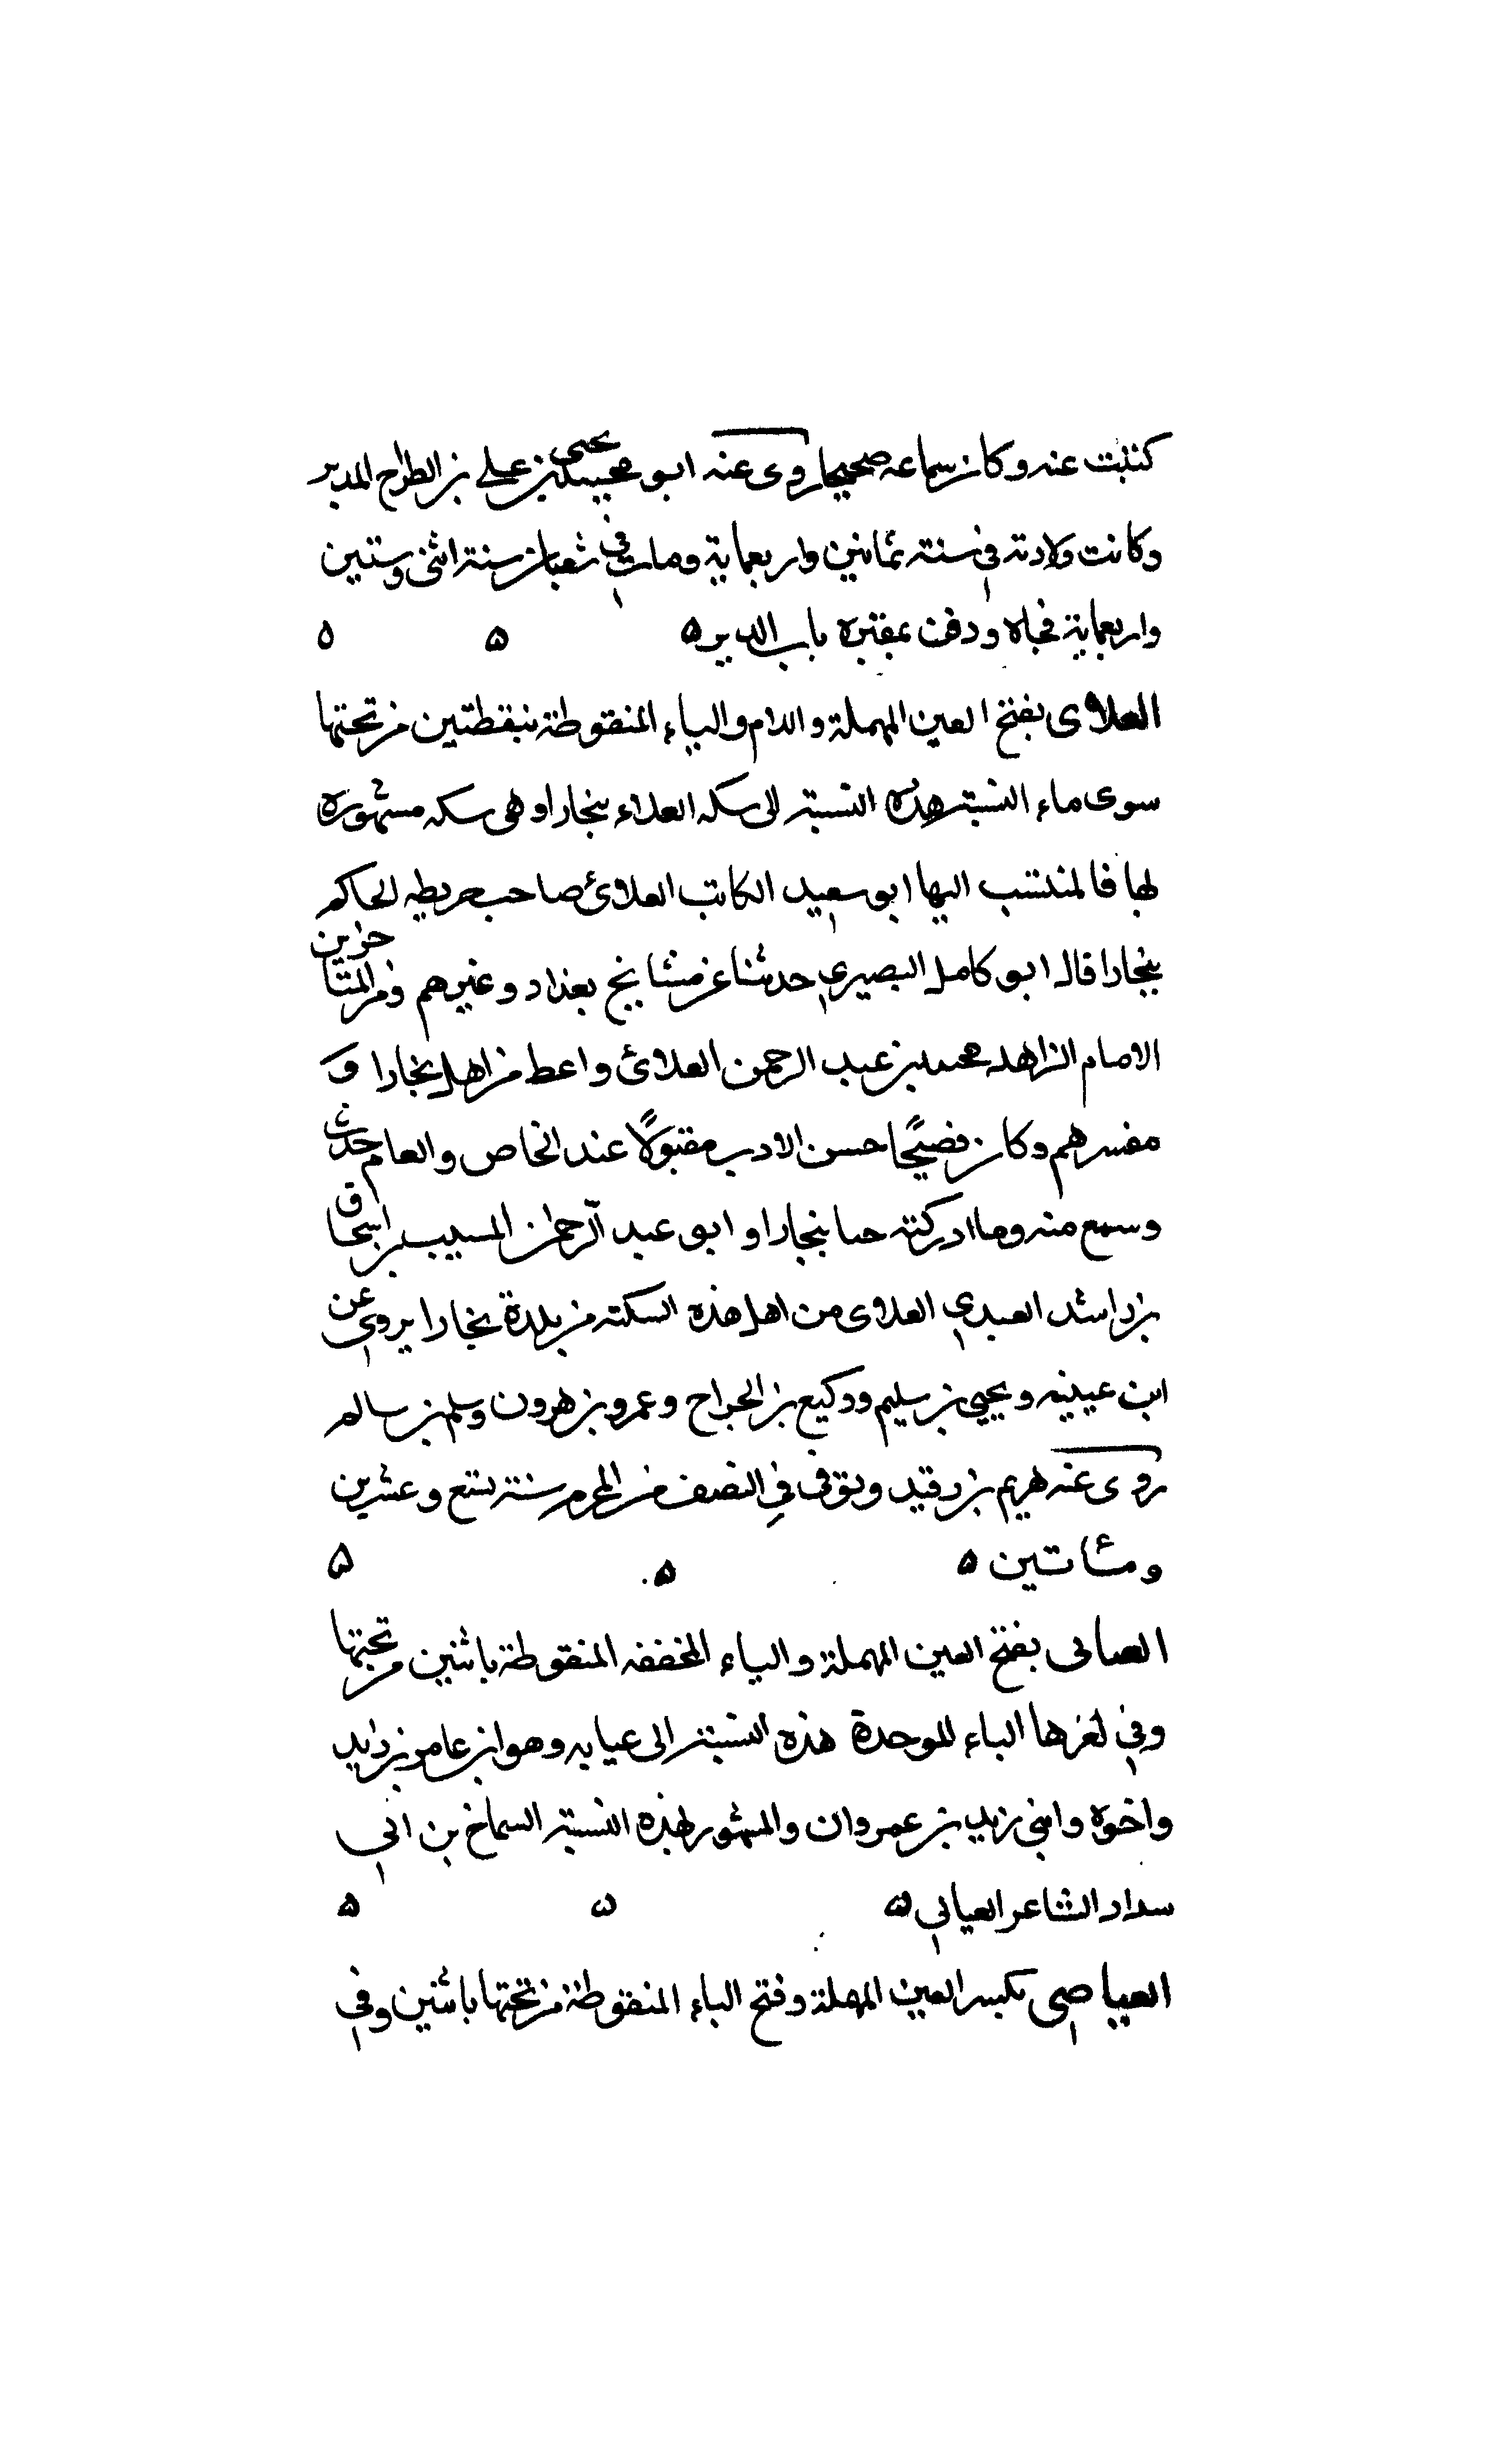 كتبت عنه وكان سماعه صحيحا روى عنه ابو محمد يحيى بن علي بن الطراح المدير
وكانت ولادته في سنة ثمانين واربعماية ومات في شعبان سنة اثنى وستين
واربعماية فجاه ودفن بمقبرة باب الدير ه ه ه
العلاوى بفتح العين المهملة واللام والياء المنقوطة بنقطتين من تحتها
سوى ماء النسبة هذه النسبة الى سكه العلاء ببخارا وهى سكه مشهورة
لها فالمنتسب اليها ابو سعيد الكاتب العلائ صاحب خريطه الحاكم
ببخارا قال ابو كامل البصيري حدثنا عن مشايخ بغداد وغيرهم ومن المتاخرين
الامام الزاهد محمد بن عبد الرحمن العلائ واعظ من اهل بخارا و
مفسرهم وكان فصيحًا حسن الادب مقبولًا عند الخاص والعام حدث
وسمع منه وما ادركته حيا ببخارا وابو عبد الرحمن المسيب بن اسحاق
بن راشد العبدي العلاوى من اهل هذه السكة من بلدة بخارا يروى عن
ابن عيينه ويحيى بن سليم ووكيع بن الجراح وعمرو بن هرون وسلم بن سالم
روى عنه هريم بن رقيد وتوفى في النصف من المحرم سنة تسع وعشرين
ومئاتين ه ه ه
العيابى بفتح العين المهملة والياء المخففه المنقوطة باثنين من تحتها
وفي اخرها الباء الموحدة هذه النسبة الى عيابه وهو ابن عامر بن زيد
واخوه وابنى زيد بن عمروان والمشهور لهذه النسبة السماخ بن ابي
سداد الشاعر العيابي ه ه ه
العياضي بكسر العين المهملة وفتح الياء المنقوطة من تحتها باثنين وفي